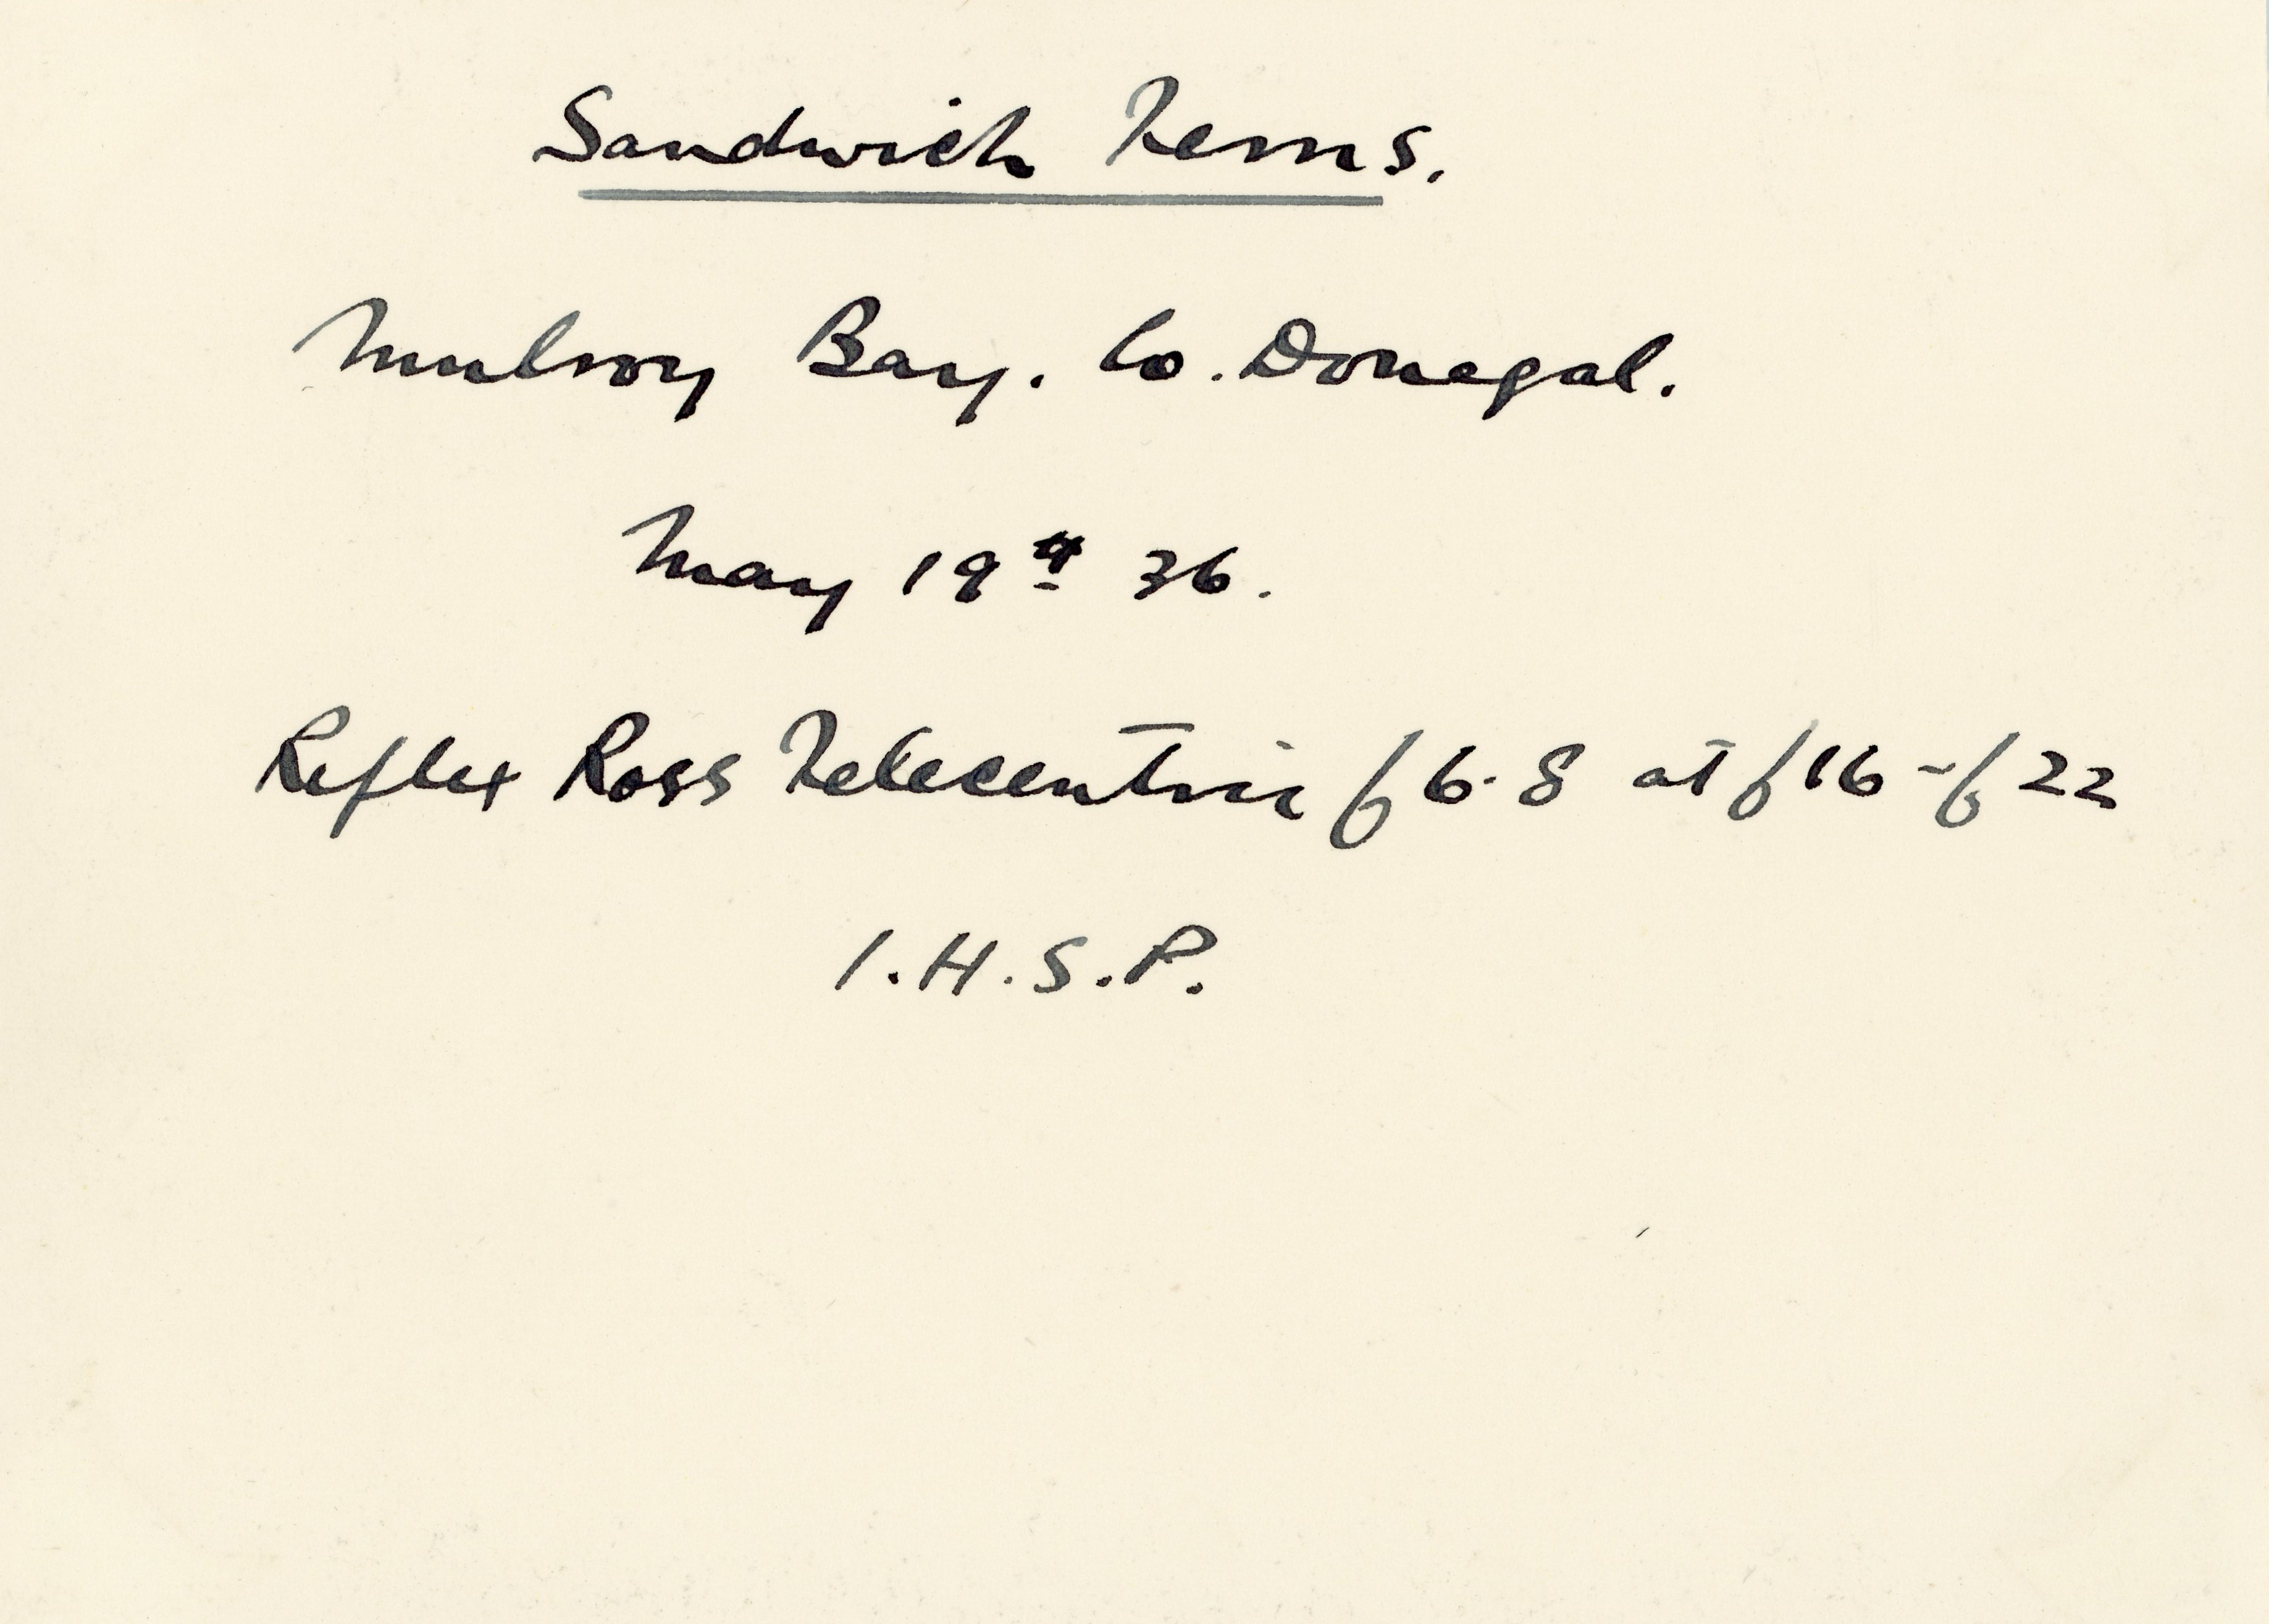 Sandwich Terns.
Mulroy Bay. Co. Donegal.
May 19th 36.
Reflex Ross Telecentric f6.8 at f16-f22
I.H.S.P.